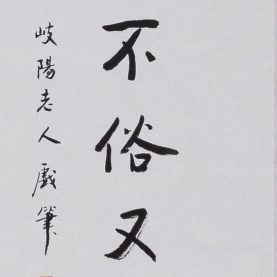 不俗又
岐陽老人戲筆